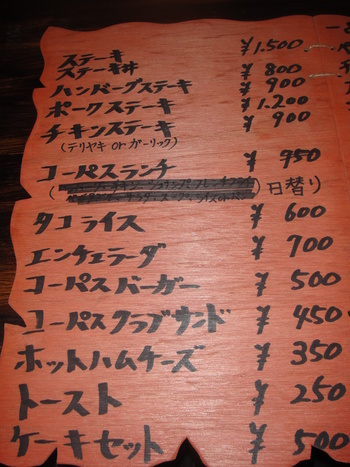 ステーキ ¥1.500
ステーキ丼 ¥800
ハンバーグステーキ ¥900
ポークステーキ ¥1.200
チキンステーキ ¥900
(テリヤキ or ガーリック)
コーパスランチ ¥950
( ) 日替り
タコライス ¥600
エンチェラーダ ¥700
コーパスバーガー ¥500
コーパスクラブサンド ¥450
ホットハムチーズ ¥350
トースト ¥250
ケーキセット ¥500